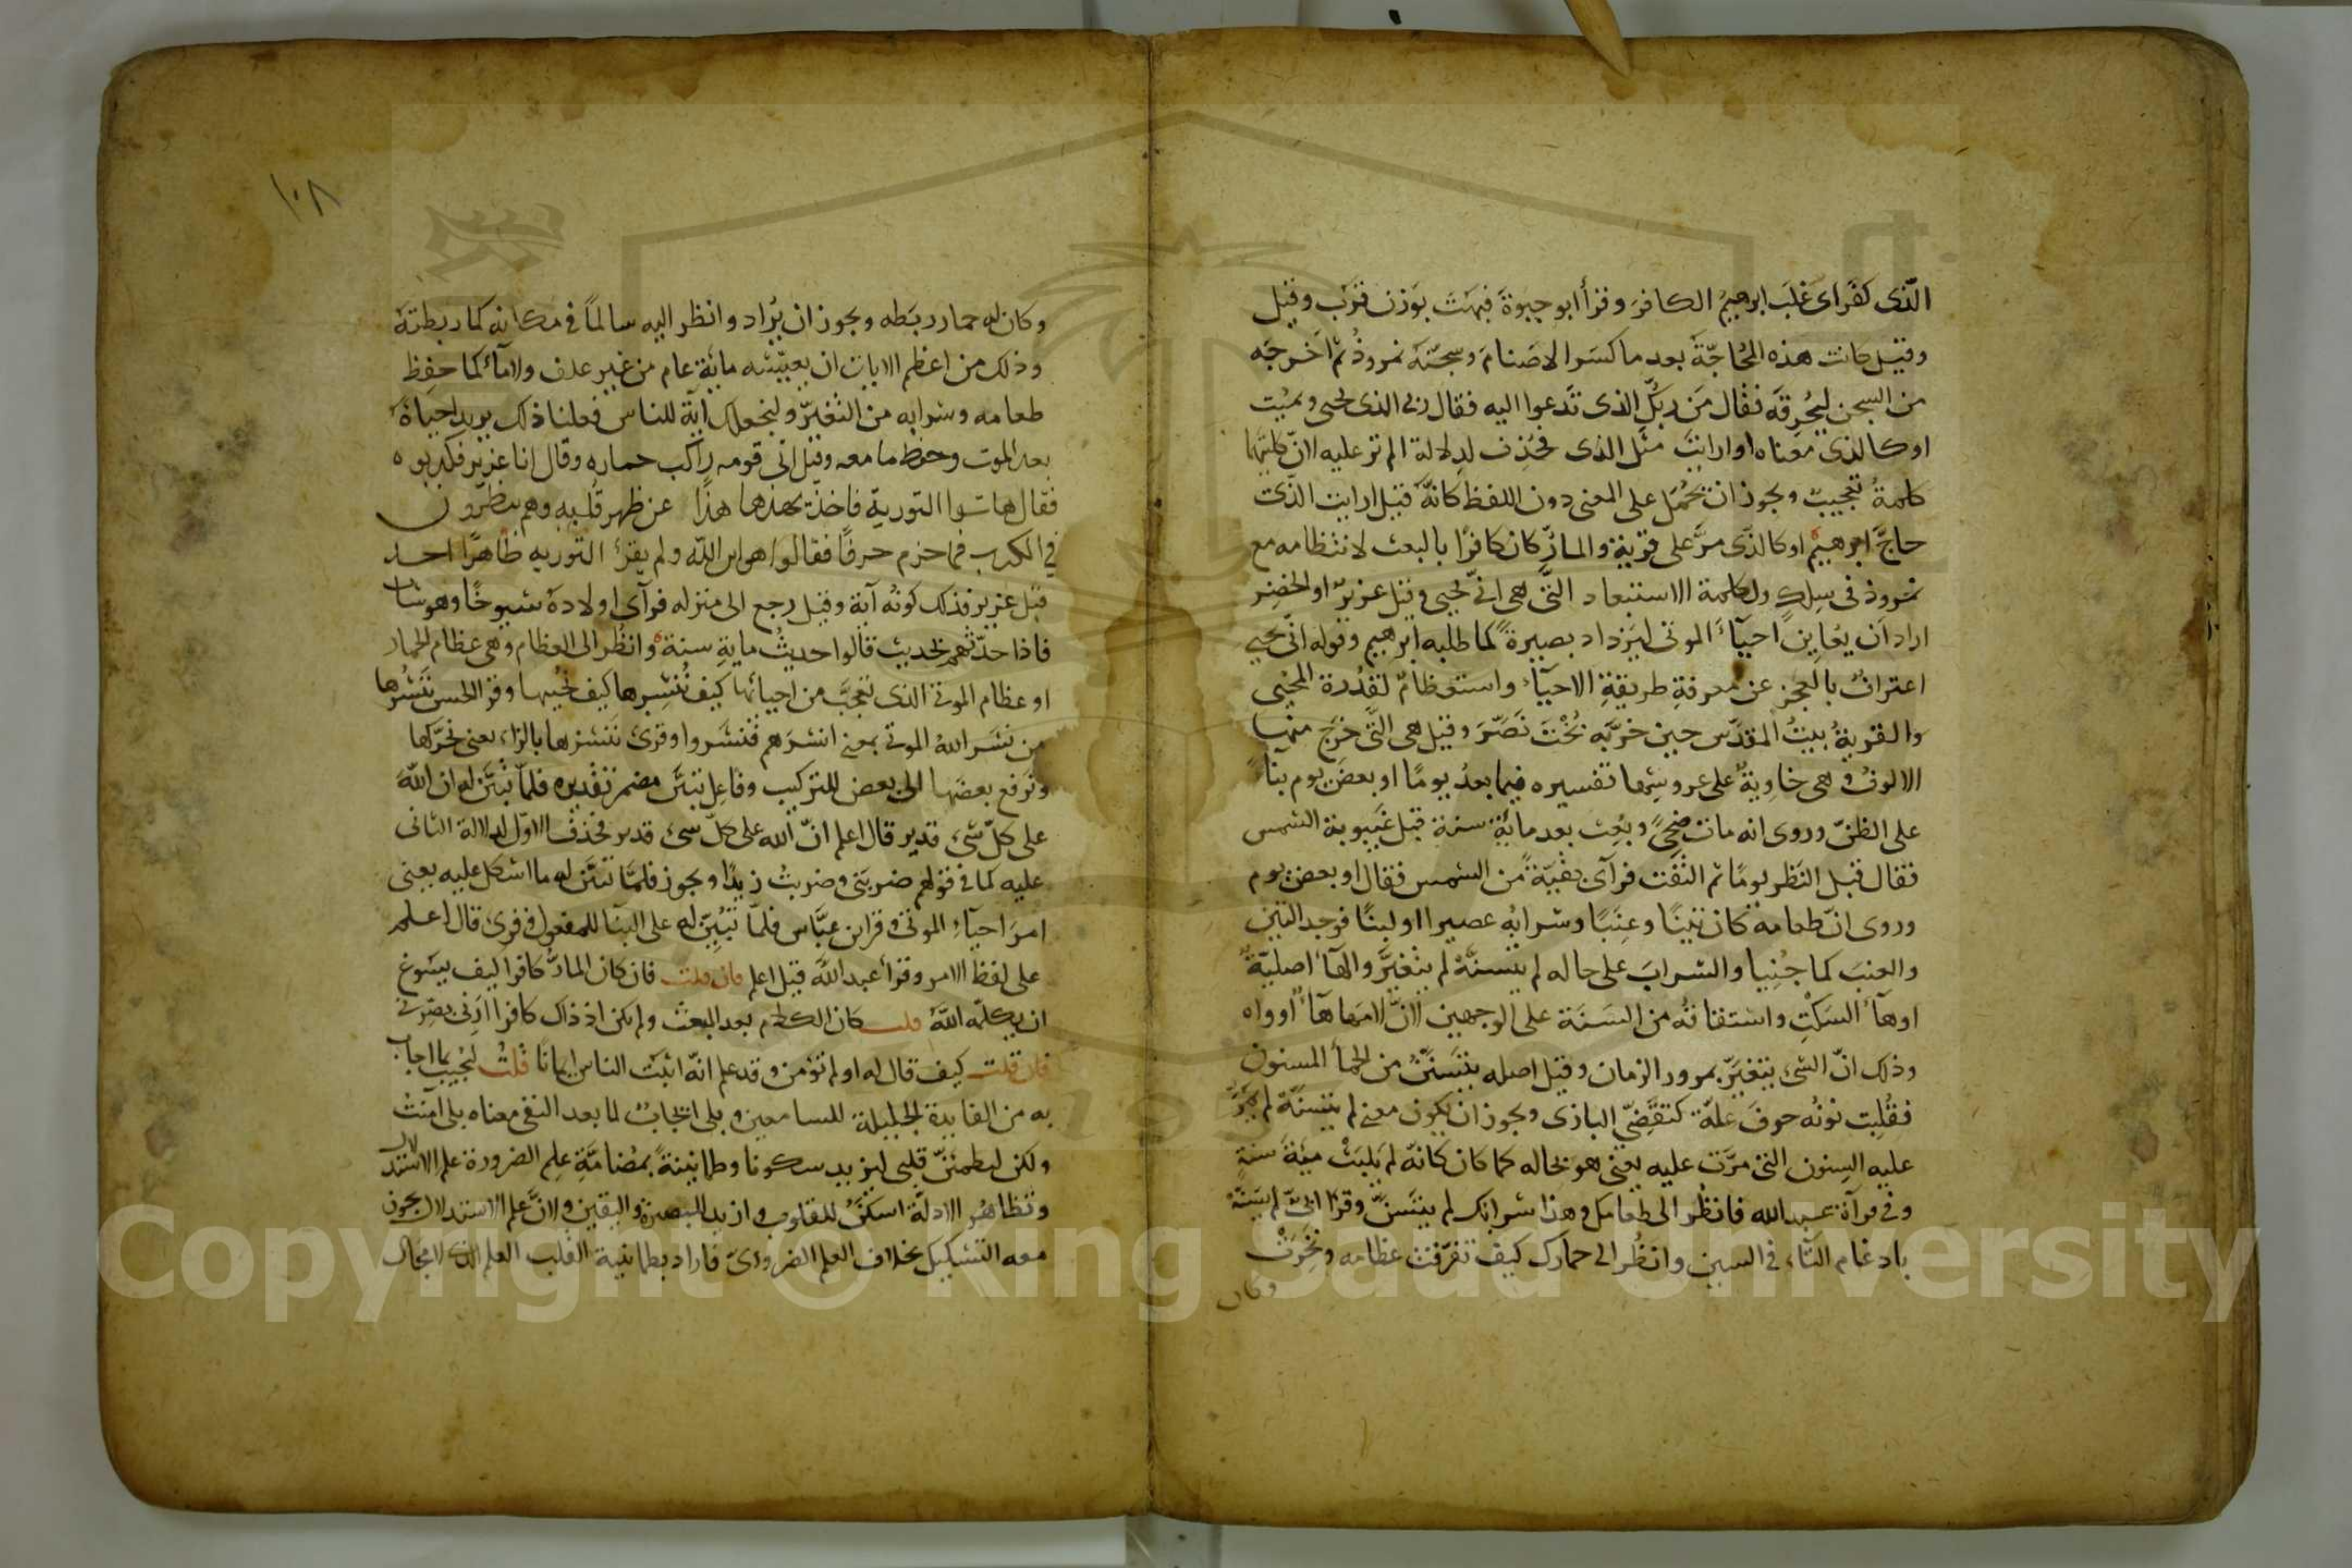 الّذى كفر اى غلَب ابرهيمُ الكافرَ وقرأ ابو حيوةَ فبَهتَ بوَزن قرَب وقيل
وقيل كانت هذه المُحاجّةَ بعد ما كسَر الاصنامَ وسجّنَه نمروذُ ثم اخرجَه
من السجن ليُحرِقَه فقال من ربكَ الذى تَدعوا اليه فقال ربى الذى يحيى ويميت
او كالذى معناه او ارايتَ مثل الذى فحُذِف لدلالة الم تر عليه لانّ كلتيهما
كلمةُ تعجيب ويجوز ان يُحمَل على المعنى دون اللفظ كانّه قيل ارايت الذى
حاجَّ ابرهيمَ او كالذى مرَّ على قرية والمارّ كان كافرًا بالبعث لانتظامه مع
نمروذ فى سِلكٍ ولكلمة الاستبعاد التى هى انّى يحيى وقيل عزيرٌ او الخضِر
اراد ان يعَاين احيآءَ الموتى ليَزداد بصيرةً كما طلبه ابرهيم وقوله انّى يحيى
اعترافٌ بالعجز عن معرفةِ طريقةِ الاحيآء واستعظامٌ لقُدرة المحيى
والقريةُ بيتُ المقدّس حين خرَّبه بُخْتَ نَصَّرَ وقيل هى التّى خرَج منها
الالوفُ وهى خاوِيةٌ على عروشِها تفسيره فيما بعدُ يومًا او بعضَ يوم بناءً
على الظنّ وروى انه مات ضحىً وبُعِث بعد مايةِ سنة قبل غيبوبة الشمس
فقال قبل النَظر يومًا ثم التفَت فرآى بقيّةً من الشمس فقال او بعض يوم
وروى انّ طعامه كان تينًا وعِنَبًا وشرابُه عصيرا او لبنًا فوجد التين
والعنبَ كما جُنِيا والشرابَ على حاله لم يتسنّه لم يتغيَّر والهآء اصليّةٌ
او هآءُ السَكْتِ واشتقاقُه من السَنَة على الوجهين لانّ لامَها هآءٌ او واو
وذلك انّ الشئ يتغيّر بمرور الزمان وقيل اصله يتسَنّن من الحمأ المسنون
فقُلِبت نونُه حرفَ علّة كتقضّى البازى ويجوز ان يكون معنى لم يتسنّه لم يمرَّ
عليه السِنون التى مرَّت عليه يعنى هو بحاله كما كان كانّه لم يَلبث ميةَ سنةٍ
وفى قرآة عبد الله فانظُر الى طعامك وهذا شرابك لم يتسَنّ وقرأ ابىّ لم يسّنّه
بادغام التّاء فى السين وانظُر الى حمارك كيف تفرّقت عظامه ونَخِرَتْ
وكان
١٠٨
وكان له حمار ربَطه ويجوز ان يُراد وانظر اليه سالمًا فى مكانه كما ربطتَه
وذلك من اعظم الايات ان يعيّشه مايةَ عام من غير علف ولا مآء كما حفِظ
طعامه وشرابه من التغيّر ولنجعلك آية للناس فعلنا ذلك يريد احياءَه
بعد الموت وحفظ ما معه وقيل اتى قومه راكب حماره وقال انا عزير فكذبوه
فقال هاتوا التورية فاخذ يهذها هذًّا عن ظهر قلبه وهم ينظرون
فى الكتاب فما خرم حرفًا فقالوا هو ابن الله ولم يقرأ التورية ظاهرًا احد
قبل عزير فذلك كونُه آية وقيل رجع الى منزله فرآى اولاده شيوخًا وهو شاب
فاذا حدّثهم بحديث قالوا حديثُ مايةِ سنة وانظُر الى العظام وهى عظام الحمار
او عظام الموتى الذى تعجَّب من احيائها كيف نُنشِرها كيف نحييها وقرأ الحسن نَنشُرها
من نشَر اللهُ الموتى بمعنى انشرَهم فنشَروا وقرئ ننشزها بالزاء يعنى نحرّكها
ونرفع بعضَها الى بعض للتركيب وفاعِل تبيّنَ مضمر تقديره فلمّا تبيَّن له انّ اللهَ
على كلّ شئ قدير قال اعلم انّ الله على كلّ شئ قدير فحُذفَ الاوّل لدلالة الثانى
عليه كما فى قولهم ضربنى وضربتُ زيدًا ويجوز فلمّا تبيّن له ما اشكل عليه يعنى
امرَ احيآءِ الموتى وقرا ابن عبَّاس فلمّا تُبُيّن له على البنآ للمفعول وقرئ قال اعلم
على لفظ الامر وقرأ عبد الله قيل اعلم فان قلت فان كان المارّ كافرا كيف يسوغ
ان يكلّمه اللّهُ قلت كان الكلام بعد البعث ولم يكن اذ ذاك كافرا ارنى بصّرنى
فان قلت كيف قال له اولم تؤمن وقد علم انّه اثبَت الناس ايمانًا قلتُ ليُجيب بما اجاب
به من الفايدة الجليلة للسامعين وبلى ايجابٌ لما بعد النفى معناه بلى آمنتُ
ولكن ليطمئنّ قلبى ليزيد سكونا وطمانينةً بمُضامّةِ عِلم الضرورة علمَ الاستدلال
وتظاهُر الادلّة اسكنُ للقلوب وازيد للبصيرة واليقين ولانَّ علم الاستدلال يجوز
معه التشكيك بخلاف العلم الضرورىّ فاراد بطمانينة القلب العلم الذى لا مجال
Copyright © King Saud University